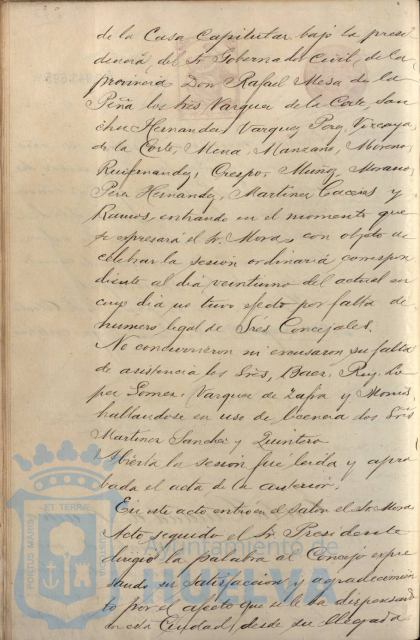 de la Casa Capitular bajo la presi
dencia del Sr Gobernador Civil, de la
provincia Don Rafael Mesa de la
Peña los Sres Vazquez de la Corte, San
chez Hernandez, Vazquez Perez, Vizcaya,
de la Corte, Mora, Manzano, Moreno,
Ruifernandez, Crespo, Muñoz, Morano,
Perez Hernandez, Martinez Caceres y
Ramos, entrando en el momento que
se espresará el Sr. Mora, con objeto de
celebrar la sesión ordinaria correspon
diente al dia veintiuno del actual en
cuyo dia no tuvo efecto por falta de
numero legal de Sres Concejales.
No concurrieron ni escusaron su falta
de asistencia los Sres, Baez, Ruy, Lo
pez Gomez, Vazquez de Zafra y Morris
hallandose en uso de licencia dos Sres
Martinez Sanchez y Quintero
Abierta la sesión fué leida y apro
bada el acta de la anterior.
En este acto entró en el Salon el Sr. Mora
Acto seguido el Sr. Presidente
dirigió la palabra al Concejo expre
sando su satisfaccion y agradecimien
to por el afecto que se le ha dispensado
en esta Ciudad, desde su llegada
PORTUS MARIS ET TERRAE
Ayuntamiento de
HUELVA